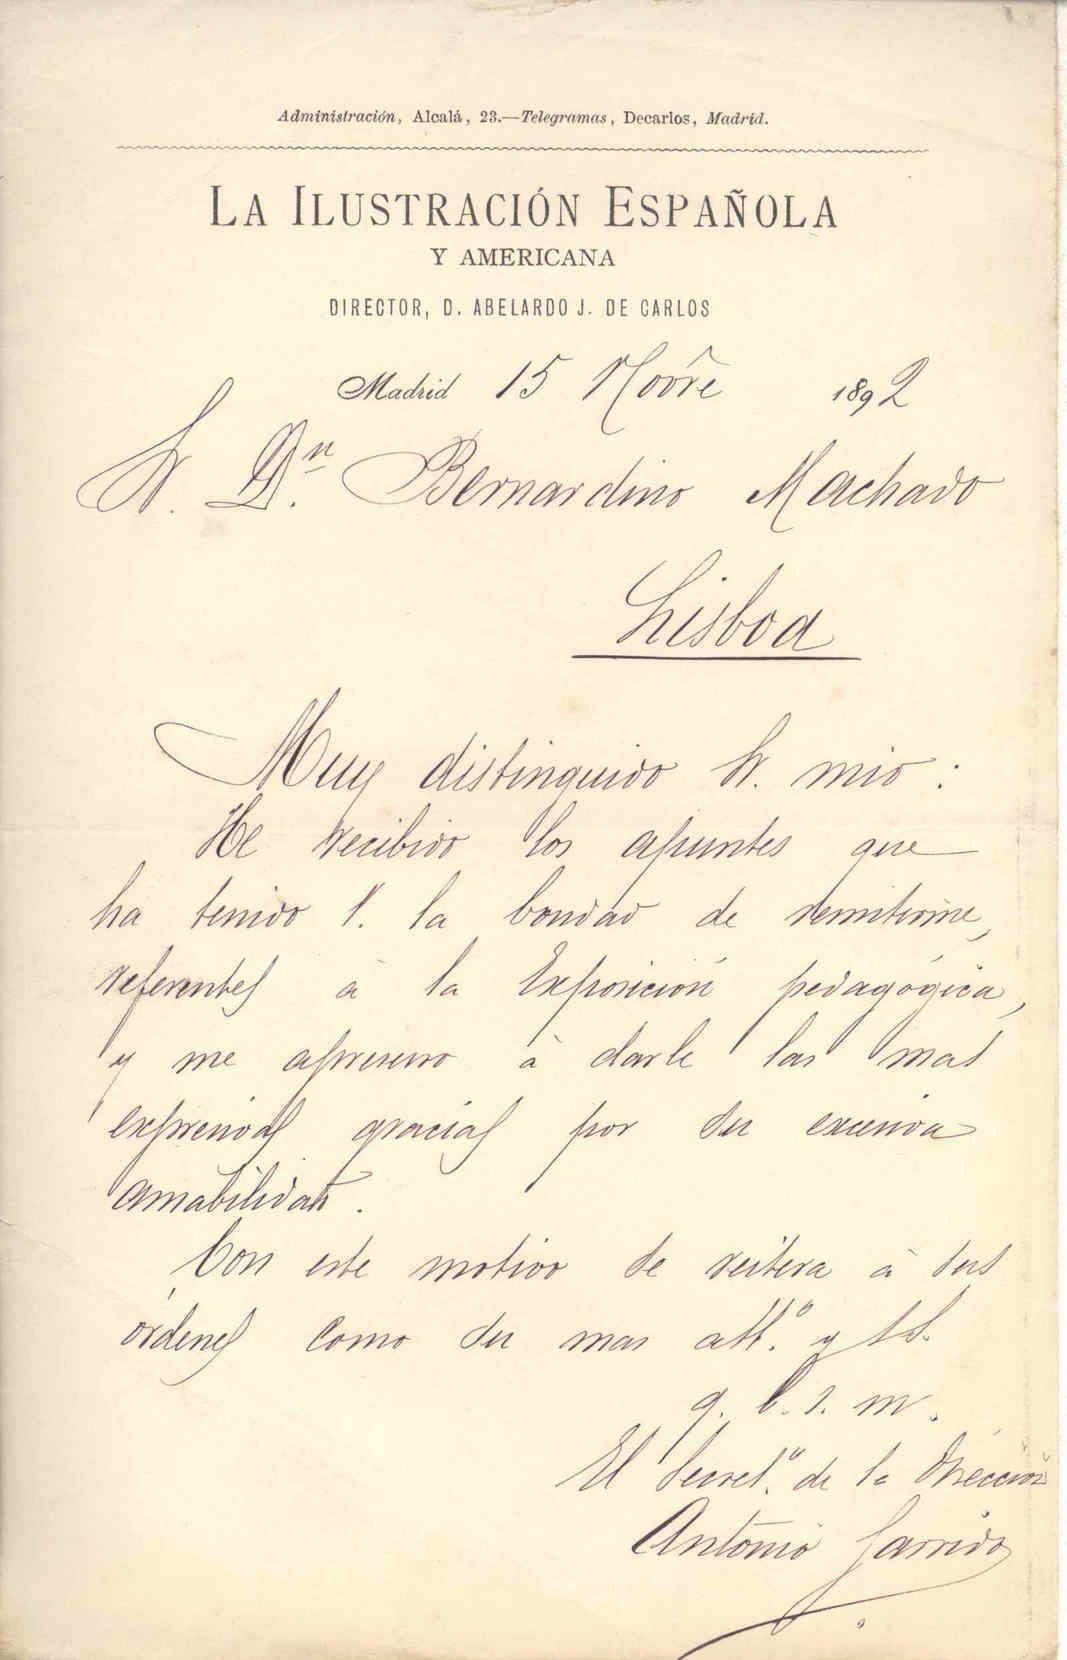 Administración, Alcalá, 23.—Telegramas, Decarlos, Madrid.
LA ILUSTRACIÓN ESPAÑOLA
Y AMERICANA
DIRECTOR, D. ABELARDO J. DE CARLOS
Madrid 15 Novre 1892
Sr. Dn. Bernardino Machado
Lisboa
Muy distinguido Sr. mio:
He recibido los apuntes que
ha tenido V. la bondad de remitirme,
referentes à la Exposición pedagógica,
y me apresuro à darle las mas
expresivas gracias por su excesiva
amabilidad.
Con este motivo se reitera à sus
órdenes como su mas att.º y S S.
q. b. s. m.
El Secret.º de la Dirección
Antonio Garrido